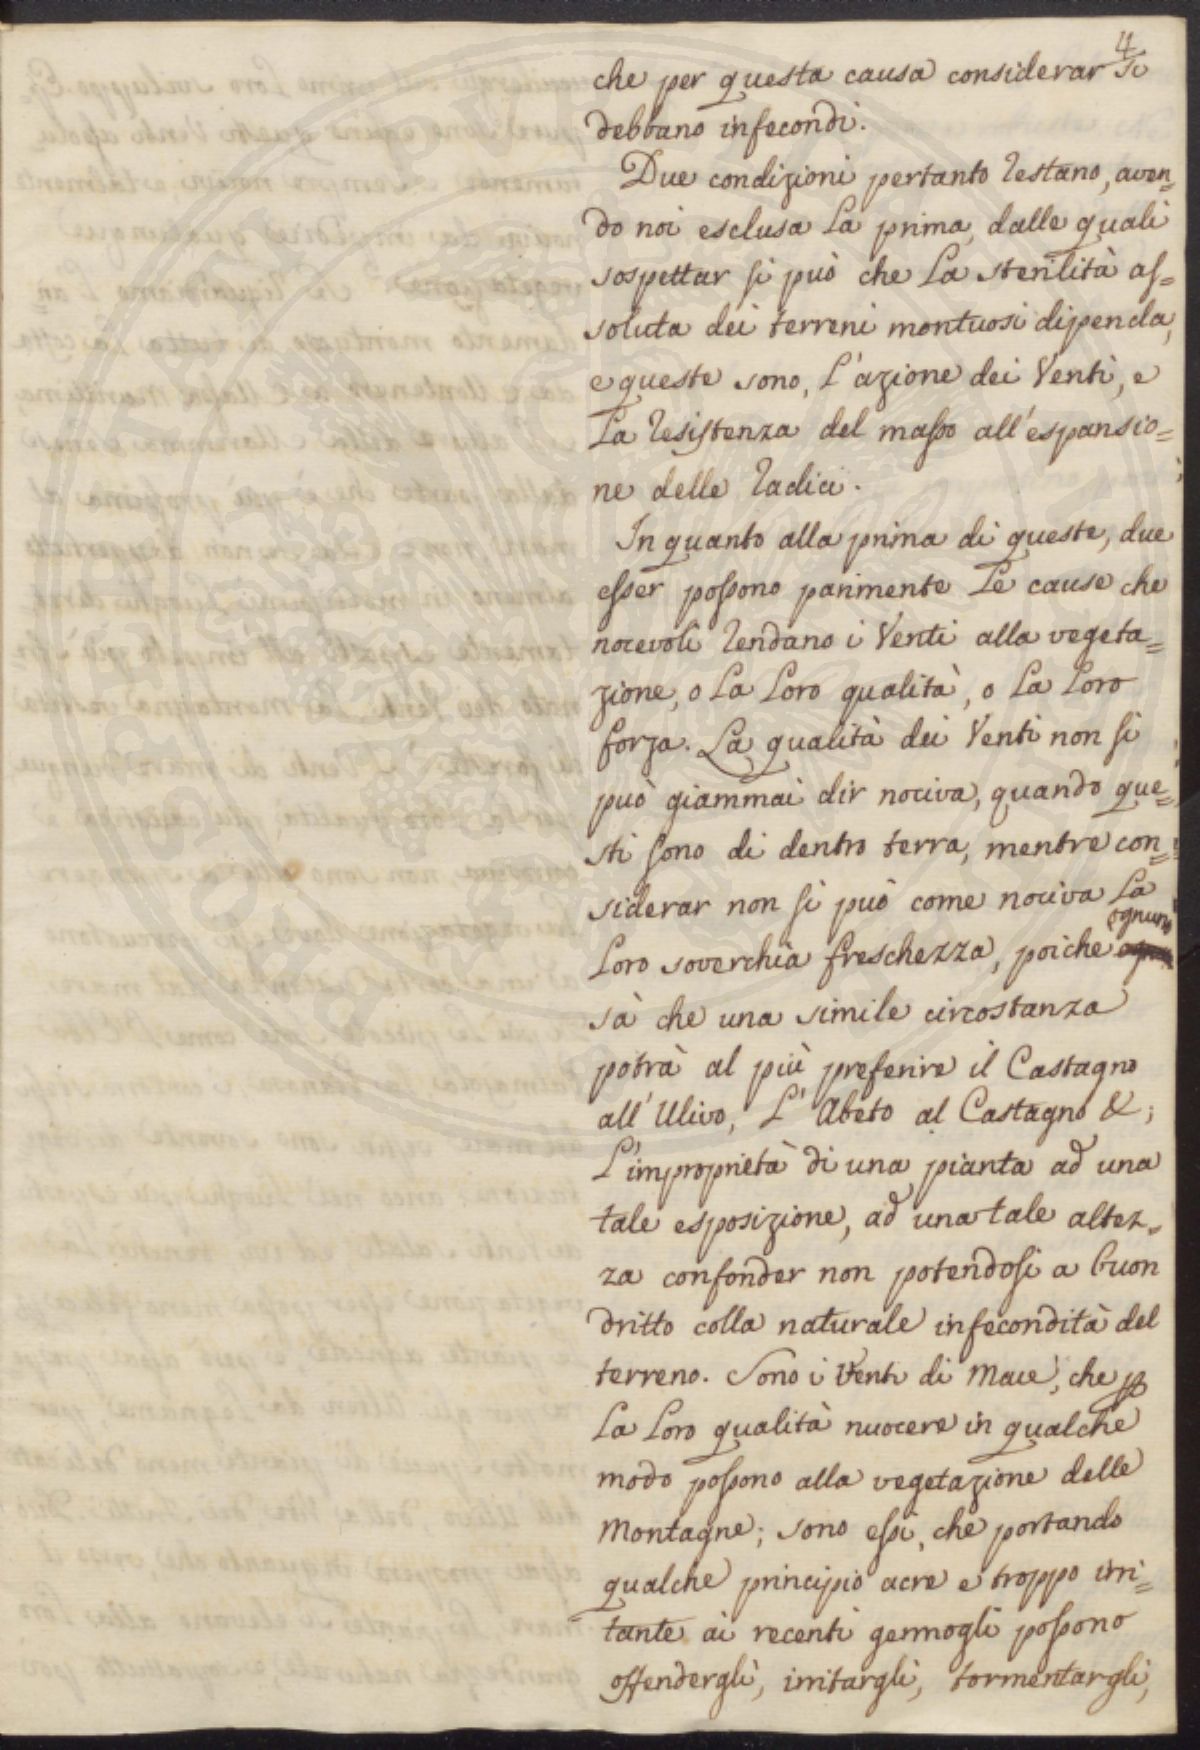 4
che per questa causa considerar si
debbano infecondi.
Due condizioni pertanto restano, aven=
do noi esclusa la prima, dalle quali
sospettar si può che la sterilità as=
soluta dei terreni montuosi dipenda,
e queste sono, l'azione dei Venti, e
la resistenza del masso all'espansio=
ne delle radici.
In quanto alla prima di queste, due
esser possono parimente le cause che
nocevoli rendano i Venti alla vegeta=
zione, o la loro qualità, o la loro
forza. La qualità dei Venti non si
può giammai dir nociva, quando que=
sti sono di dentro terra, mentre con=
siderar non si può come nociva la
loro soverchia freschezza, poiche ognuno
sà che una simile circostanza
potrà al più preferire il Castagno
all'Ulivo, l'Abeto al Castagno &;
l'improprietà di una pianta ad una
tale esposizione, ad una tale altez=
za confonder non potendosi a buon
dritto colla naturale infecondità del
terreno. Sono i Venti di Mare, che p
la loro qualità nuocere in qualche
modo possono alla vegetazione delle
Montagne; sono essi, che portando
qualche principio acre e troppo irri=
tante ai recenti germogli possono
offendergli, irritargli, tormentargli,